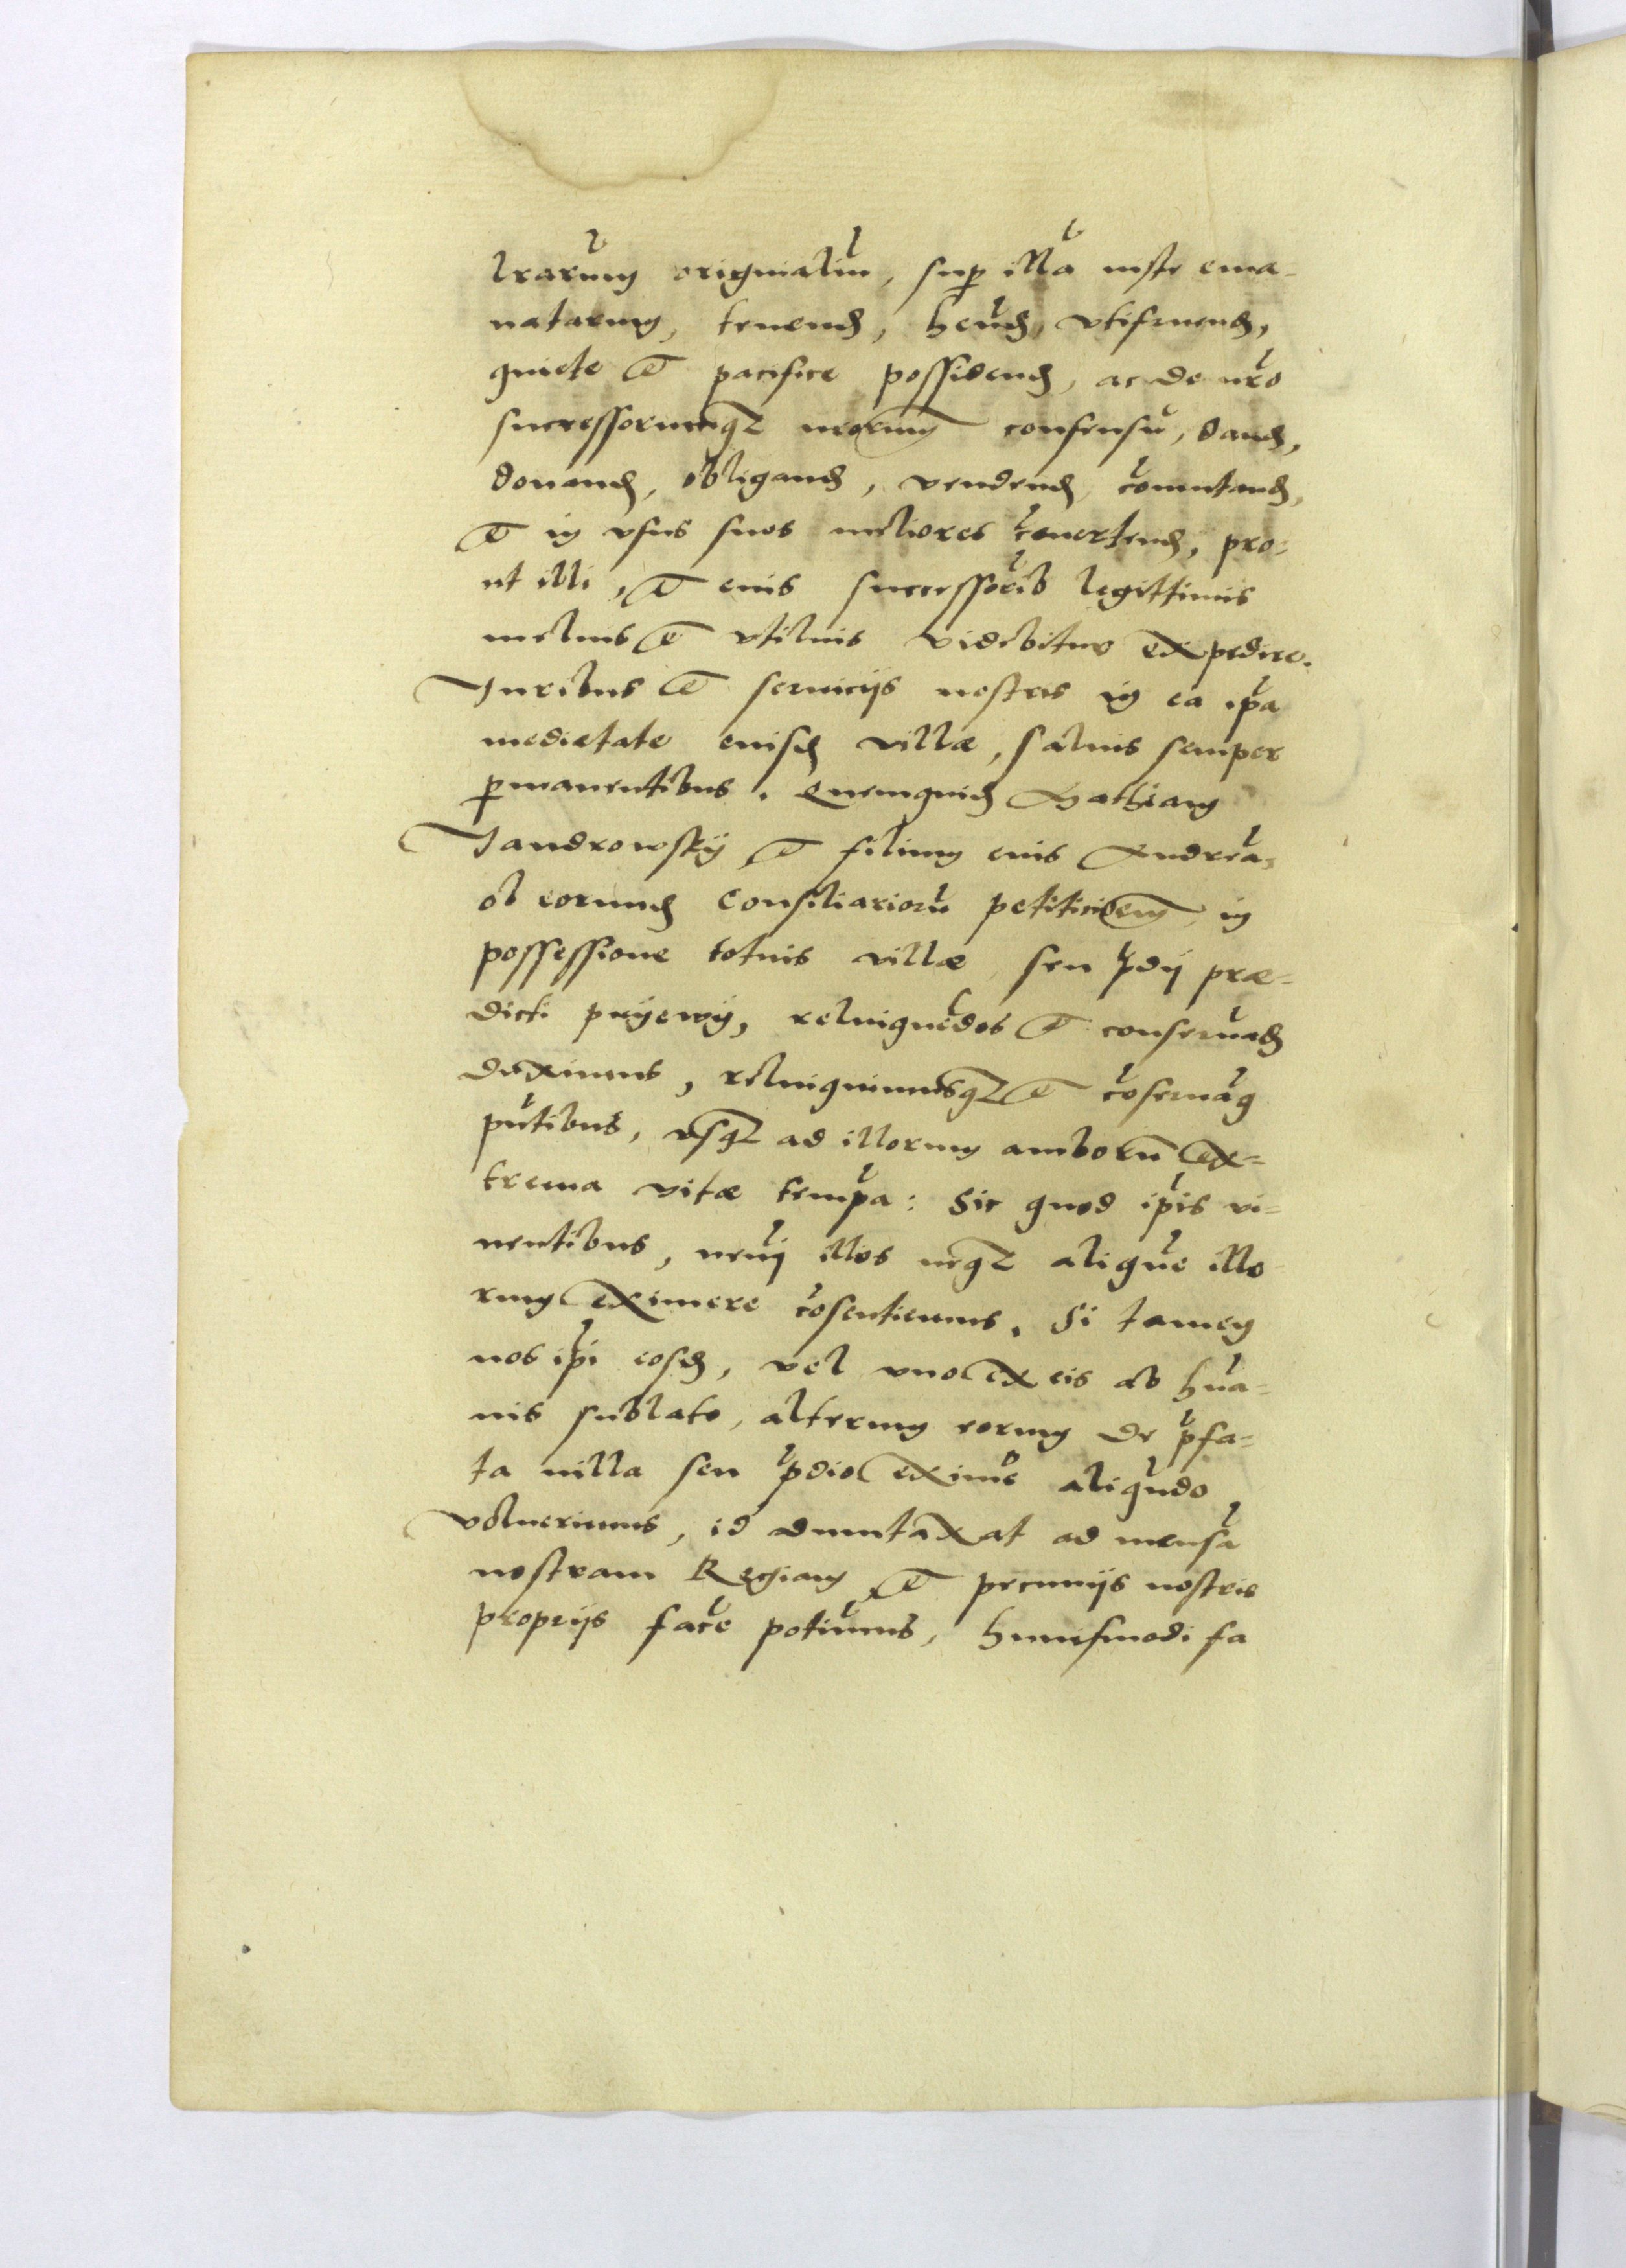 lrarum originaliu, sup illa iuste ema-
natarum, tenend, hend, vtifruend,
quiete et pacifice possidend, ac de nro
successorumq nrorum consensu, dand,
donand, obligand, vendend, comutand,
et in vsus suos meliores couertend, pro-
ut illi, et eius successorib legittimis
melius et vtilius videbitur expedire.
Iuribus et seruicijs nostris in ea ipa
medietate eiusd villæ, saluis semper
permanentibus. Quemquid Mathiam
Jandrowskÿ et filium eius Andrea,
ob eorumd Consiliarioru petiticioem in
possessione totius villæ seu pdij præ-
dicti pryewÿ, reliquedos et conseruad
duximus, relinquimusq et coseruam
putibus, vsq ad illorum amborum ex-
trema vitæ tempa: Sic quod ipis vi-
uentibus, nemi illos neq alique illo
rum eximere cosentiemus. Si tamen
nos ipi eosd, vel vno ex eis ab hua-
nis sublato, alterum eorum de pfa-
ta uilla seu pdio exime aliqudo
voluerimus, id dumtaxat ad mensa
nostram Regiam et pecunijs nostris
proprijs face potiumus, huiusmodi fa